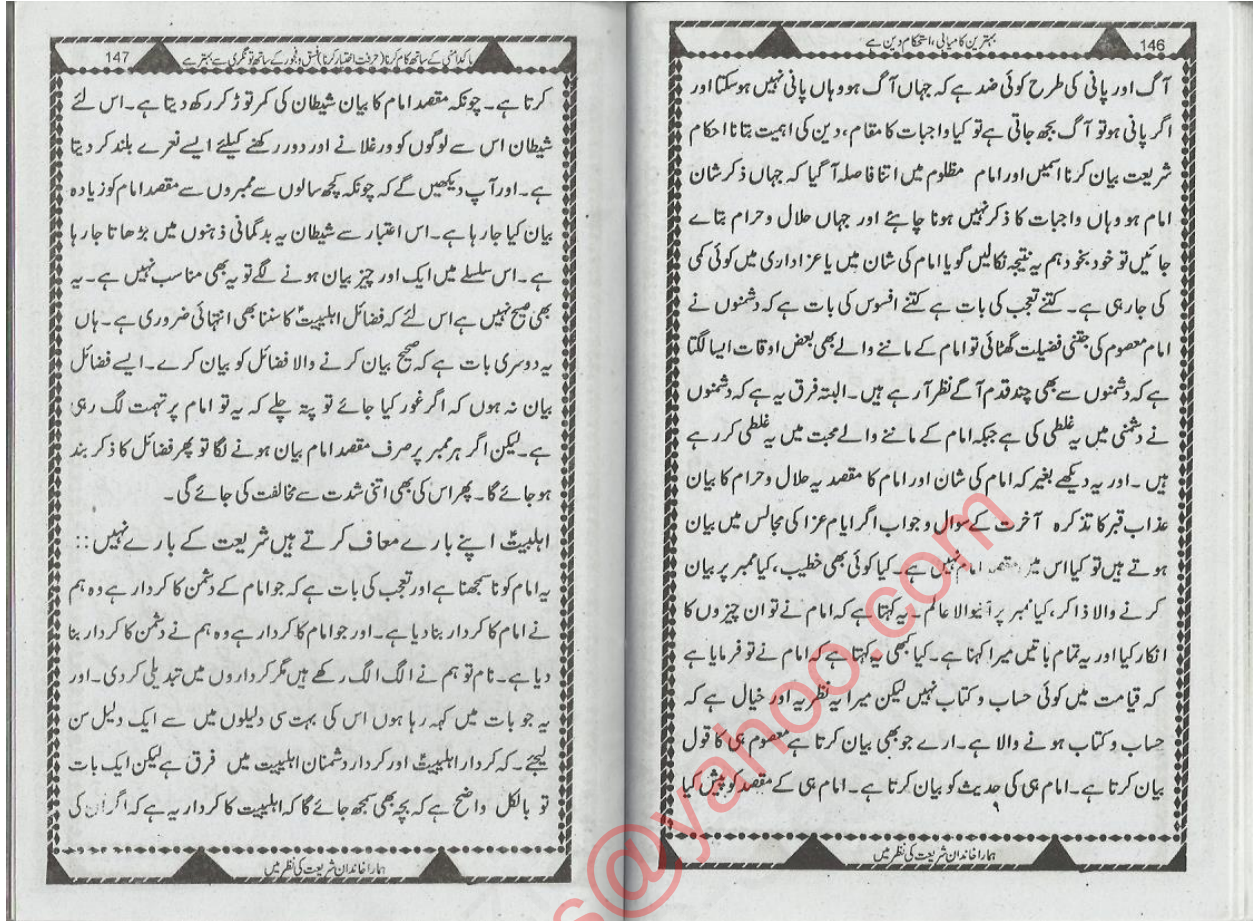 146
بہترین کامیابی، استحکام دین ہے
آگ اور پانی کی طرح کوئی ضد ہے کہ جہاں آگ ہو وہاں پانی نہیں ہوسکتا اور
اگر پانی ہو تو آگ بجھ جاتی ہے تو کیا واجبات کا مقام، دین کی اہمیت بتانا احکام
شریعت بیان کرنا اسمیں اور امام مظلوم میں اتنا فاصلہ آ گیا کہ جہاں ذکر شان
امام ہو وہاں واجبات کا ذکر نہیں ہونا چاہئے اور جہاں حلال و حرام بتائے
جائیں تو خود بخود ہم یہ نتیجہ نکالیں گویا امام کی شان میں یا عزاداری میں کوئی کمی
کی جارہی ہے۔ کتنے تعجب کی بات ہے کتنے افسوس کی بات ہے کہ دشمنوں نے
امام معصوم کی جتنی فضیلت گھٹائی تو امام کے ماننے والے بھی بعض اوقات ایسا لگتا
ہے کہ دشمنوں سے بھی چند قدم آگے نظر آرہے ہیں۔ البتہ فرق یہ ہے کہ دشمنوں
نے دشمنی میں یہ غلطی کی ہے جبکہ امام کے ماننے والے محبت میں یہ غلطی کررہے
ہیں۔ اور یہ دیکھے بغیر کہ امام کی شان اور امام کا مقصد یہ حلال و حرام کا بیان
عذاب قبر کا تذکرہ آخرت کے سوال و جواب اگر ایام عزا کی مجالس میں بیان
ہوتے ہیں تو کیا اس میں مقصد امام نہیں ہے۔ کیا کوئی بھی خطیب، کیا ممبر پر بیان
کرنے والا ذاکر، کیا ممبر پر آنیوالا عالم۔ یہ کہتا ہے کہ امام نے تو ان چیزوں کا
انکار کیا اور یہ تمام باتیں میرا کہنا ہے۔ کیا کبھی یہ کہتا ہے کہ امام نے تو فرمایا ہے
کہ قیامت میں کوئی حساب و کتاب نہیں لیکن میرا یہ نظریہ اور خیال ہے کہ
حساب و کتاب ہونے والا ہے۔ ارے جو بھی بیان کرتا ہے معصوم ہی کا قول
بیان کرتا ہے۔ امام ہی کی حدیث کو بیان کرتا ہے۔ امام ہی کے مقصد کو پیش کیا
ہمارا خاندان شریعت کی نظر میں
147
پاکدامنی کے ساتھ کام کرنا (حرفت اختیار کرنا) فسق و فجور کے ساتھ تونگری سے بہتر ہے
کرتا ہے۔ چونکہ مقصد امام کا بیان شیطان کی کمر توڑ کر رکھ دیتا ہے۔ اس لئے
شیطان اس سے لوگوں کو ورغلانے اور دور رکھنے کیلئے ایسے نعرے بلند کردیتا
ہے۔ اور آپ دیکھیں گے کہ چونکہ کچھ سالوں سے ممبروں سے مقصد امام کو زیادہ
بیان کیا جا رہا ہے۔ اس اعتبار سے شیطان یہ بدگمانی ذہنوں میں بڑھاتا جارہا
ہے۔ اس سلسلے میں ایک اور چیز بیان ہونے لگے تو یہ بھی مناسب نہیں ہے۔ یہ
بھی صحیح نہیں ہے اس لئے کہ فضائل اہلبیتؑ کا سننا بھی انتہائی ضروری ہے۔ ہاں
یہ دوسری بات ہے کہ صحیح بیان کرنے والا فضائل کو بیان کرے۔ ایسے فضائل
بیان نہ ہوں کہ اگر غور کیا جائے تو پتہ چلے کہ یہ تو امام پر تہمت لگ رہی
ہے۔ لیکن اگر ہر ممبر پر صرف مقصد امام بیان ہونے لگا تو پھر فضائل کا ذکر بند
ہو جائے گا۔ پھر اس کی بھی اتنی شدت سے مخالفت کی جائے گی۔
اہلبیتؑ اپنے بارے معاف کرتے ہیں شریعت کے بارے نہیں::
یہ امام کو نا سمجھنا ہے اور تعجب کی بات ہے کہ جو امام کے دشمن کا کردار ہے وہ ہم
نے امام کا کردار بنا دیا ہے۔ اور جو امام کا کردار ہے وہ ہم نے دشمن کا کردار بنا
دیا ہے۔ نام تو ہم نے الگ الگ رکھے ہیں مگر کرداروں میں تبدیلی کردی۔ اور
یہ جو بات میں کہہ رہا ہوں اس کی بہت سی دلیلوں میں سے ایک دلیل سن
لیجئے۔ کہ کردار اہلبیتؑ اور کردار دشمنان اہلبیت میں فرق ہے لیکن ایک بات
تو بالکل واضح ہے کہ بچہ بھی سمجھ جائے گا کہ اہلبیت کا کردار یہ ہے کہ اگر ان کی
ہمارا خاندان شریعت کی نظر میں
s@yahoo.com